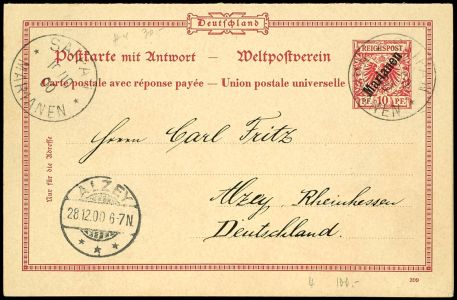 Deutschland
Postkarte mit Antwort — Weltpostverein
Carte postale avec réponse payée — Union postale universelle
REICHSPOST
Marianen
10 PF. 10 PF.
SAIPAN
MARIANEN
Nur für die Adresse
Herrn Carl Fritz
ALZEY
28.12.00 6-7N.
Alzey, Rheinhessen
Deutschland.
100,-
399